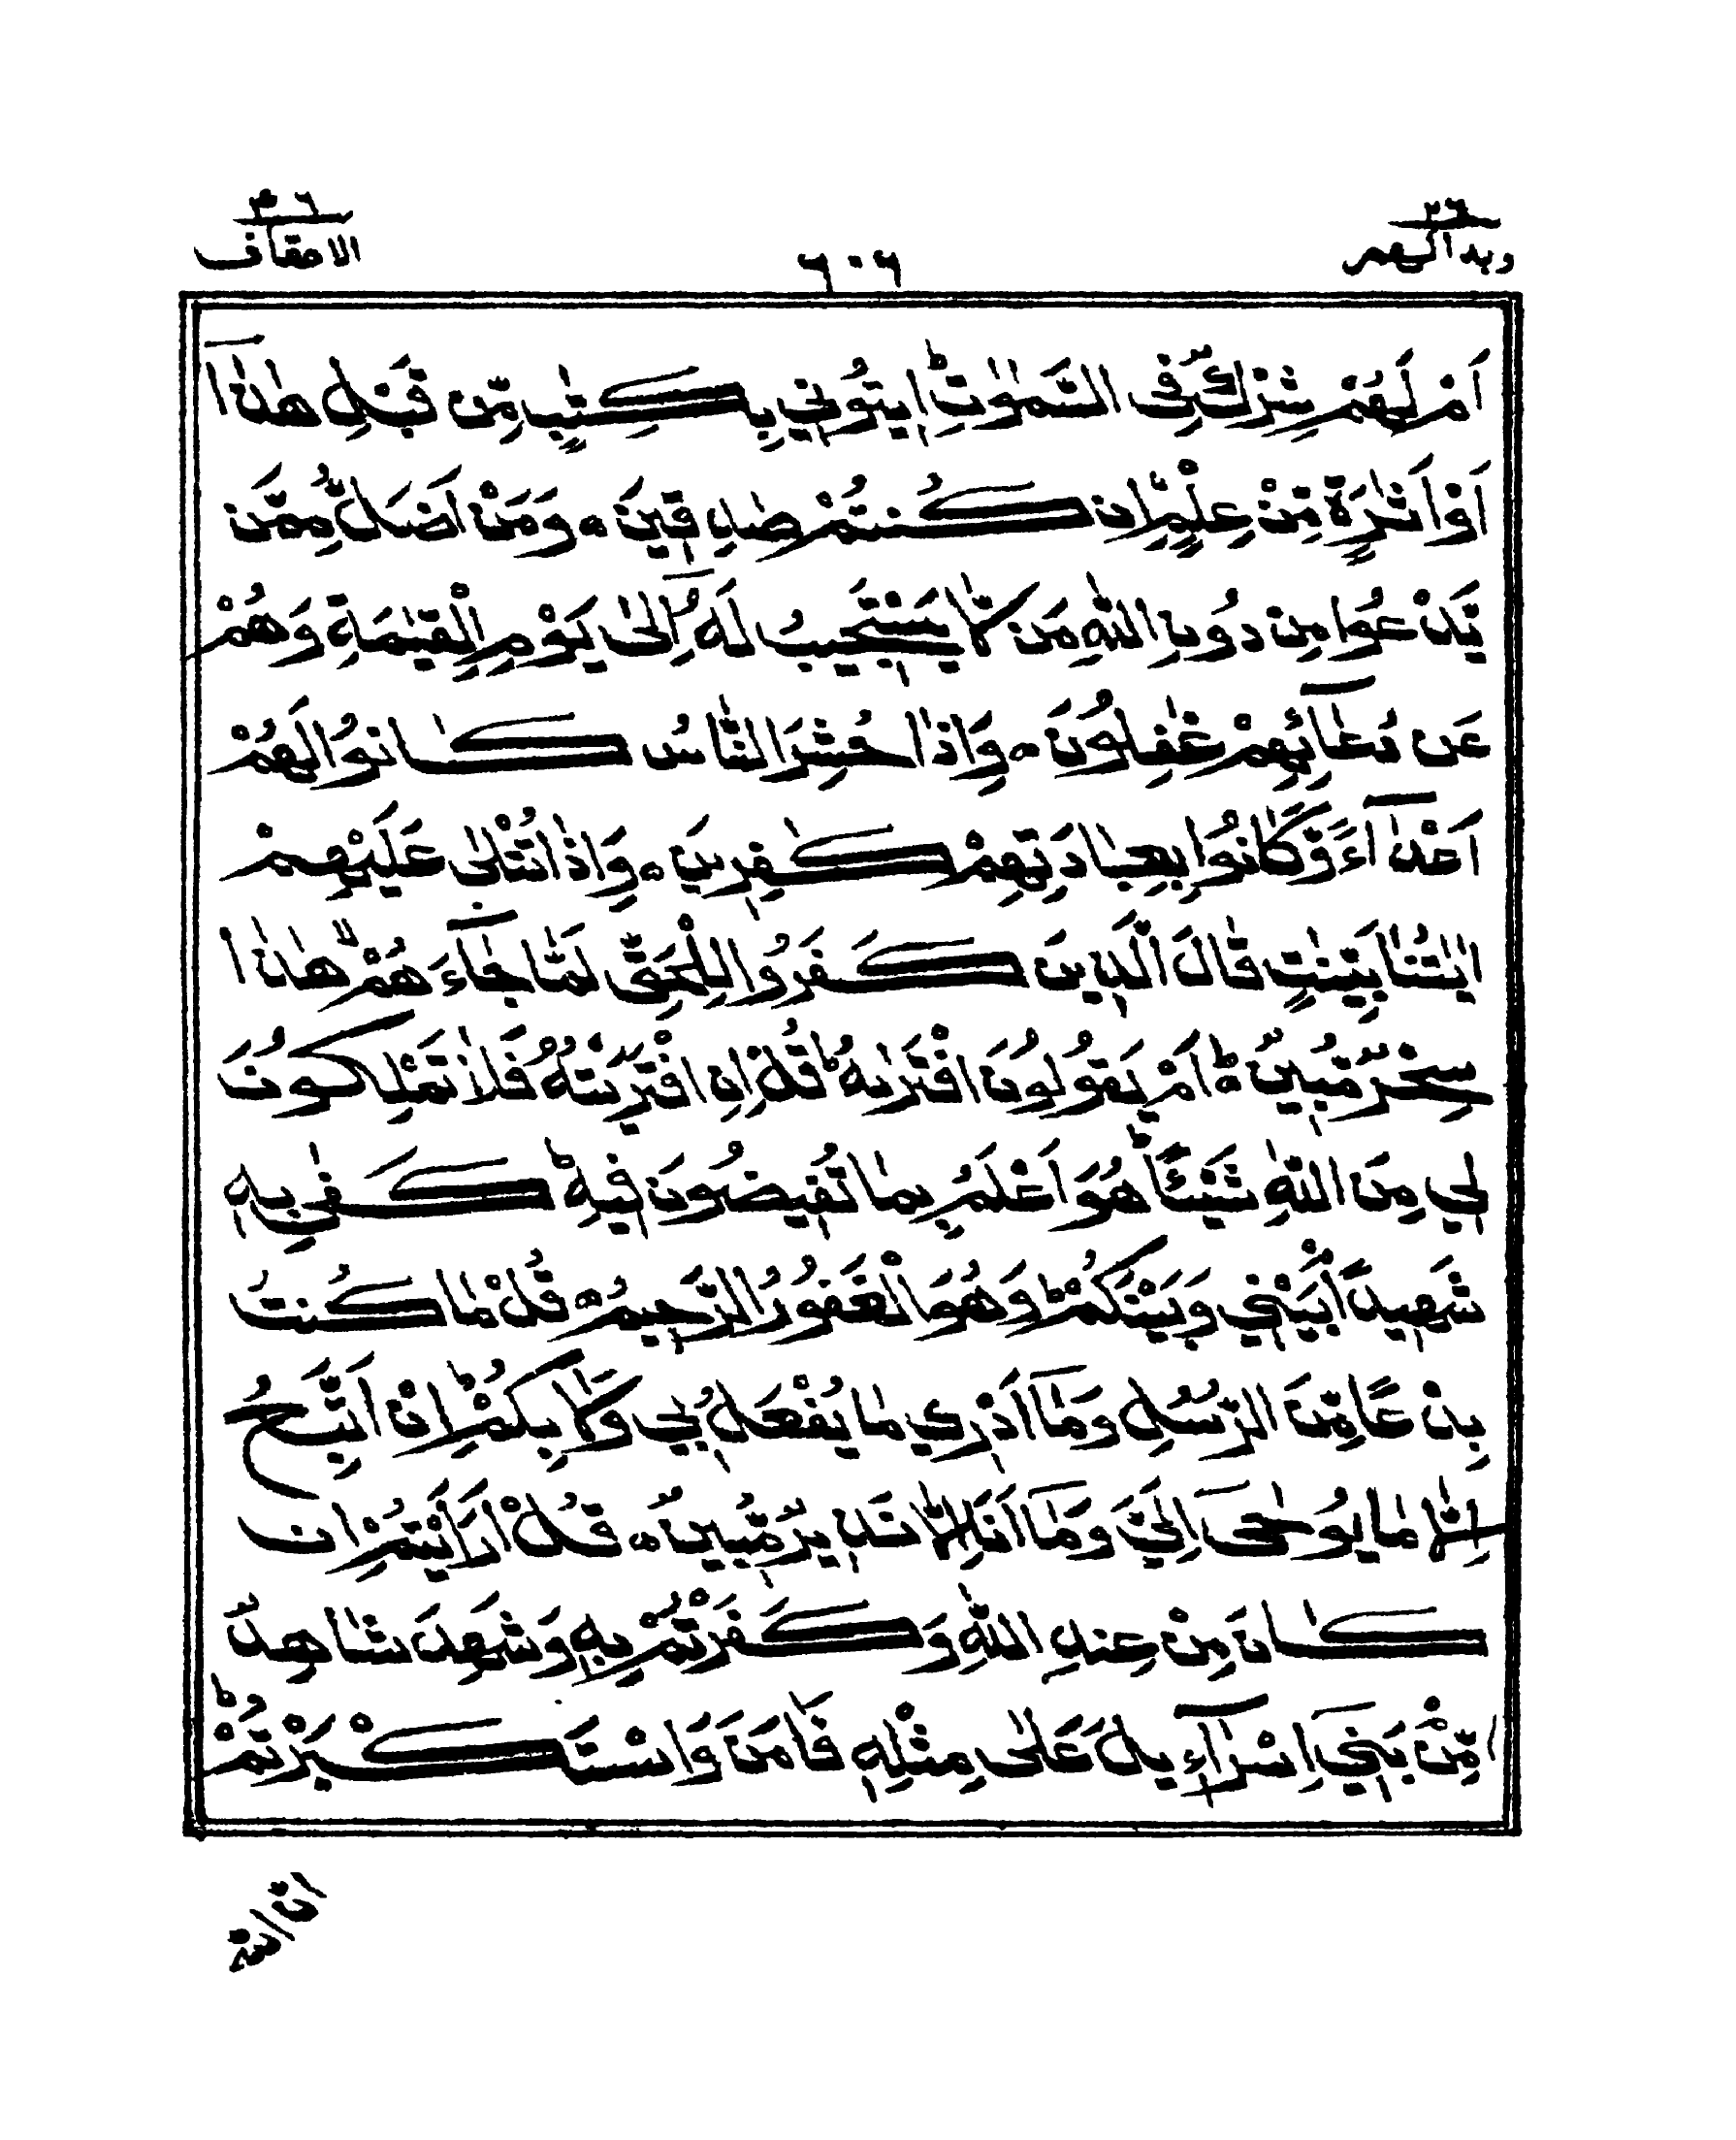 ٢٦
وبدا لهم
٦٠٦
٤٦
الاحقاف
اَمْ لَهُمْ شِرْكٌ فِی السَّمٰوٰتِؕ اِیْتُوْنِیْ بِكِتٰبٍ مِّنْ قَبْلِ هٰذَاۤ
اَوْ اَثٰرَةٍ مِّنْ عِلْمٍ اِنْ كُنتُمْ صٰدِقِیْنَ ۝ وَمَنْ اَضَلُّ مِمَّنْ
یَّدْعُوْا مِنْ دُوْنِ اللّٰهِ مَنْ لَّا یَسْتَجِیْبُ لَهٗۤ اِلٰی یَوْمِ الْقِیٰمَةِ وَهُمْ
عَنْ دُعَآئِهِمْ غٰفِلُوْنَ ۝ وَاِذَا حُشِرَ النَّاسُ كَانُوْا لَهُمْ
اَعْدَآءً وَّكَانُوْا بِعِبَادَتِهِمْ كٰفِرِیْنَ ۝ وَاِذَا تُتْلٰی عَلَیْهِمْ
اٰیٰتُنَا بَیِّنٰتٍ قَالَ الَّذِیْنَ كَفَرُوْا لِلْحَقِّ لَمَّا جَآءَ هُمْۙ هٰذَا
سِحْرٌ مُّبِیْنٌ ۝ؕ اَمْ یَقُوْلُوْنَ افْتَرٰىهُؕ قُلْ اِنِ افْتَرَیْتُهٗ فَلَا تَمْلِكُوْنَ
لِیْ مِنَ اللّٰهِ شَیْئًاؕ هُوَ اَعْلَمُ بِمَا تُفِیْضُوْنَ فِیْهِؕ كَفٰی بِهٖ
شَهِیْدًۢا بَیْنِیْ وَبَیْنَكُمْؕ وَهُوَ الْغَفُوْرُ الرَّحِیْمُ ۝ قُلْ مَا كُنتُ
بِدْعًا مِّنَ الرُّسُلِ وَمَاۤ اَدْرِیْ مَا یُفْعَلُ بِیْ وَلَا بِكُمْؕ اِنْ اَتَّبِعُ
اِلَّا مَا یُوْحٰۤی اِلَیَّ وَمَاۤ اَنَا اِلَّا نَذِیْرٌ مُّبِیْنٌ ۝ قُلْ اَرَاَیْتُمْ اِنْ
كَانَ مِنْ عِنْدِ اللّٰهِ وَكَفَرْتُمْ بِهٖ وَشَهِدَ شَاهِدٌ
مِّنْۢ بَنِیْۤ اِسْرَآءِیْلَ عَلٰی مِثْلِهٖ فَاٰمَنَ وَاسْتَكْبَرْتُمْؕ
ان الله